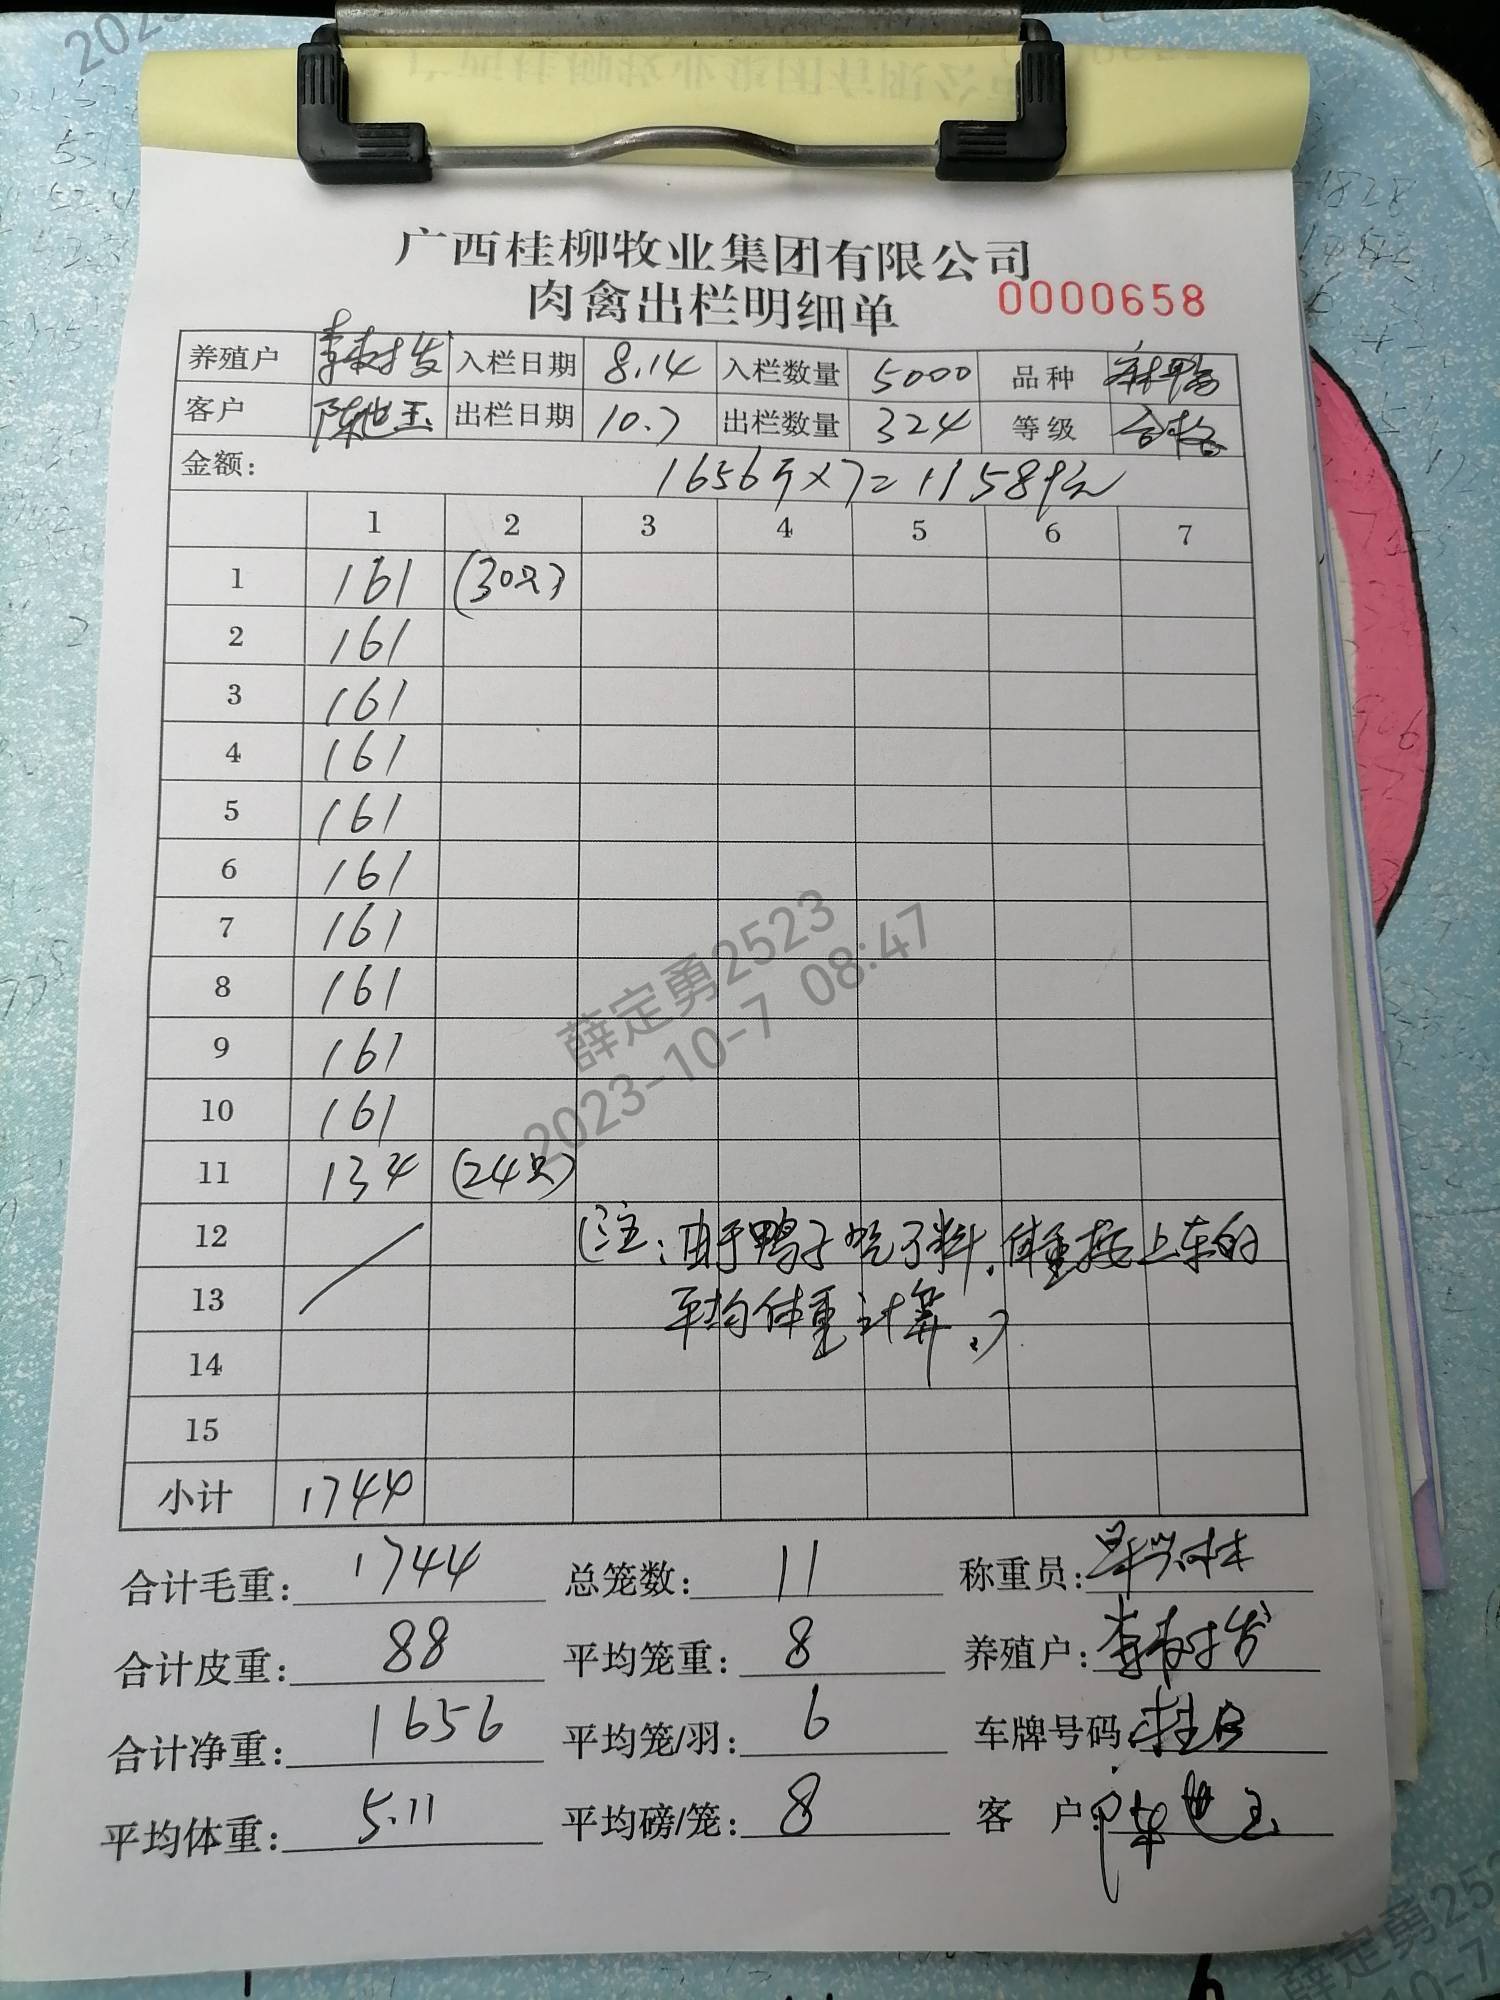 广西桂柳牧业集团有限公司
肉禽出栏明细单 0000658
养殖户 李树发 入栏日期 8.14 入栏数量 5000 品种 麻鸭
客户 陈世玉 出栏日期 10.7 出栏数量 324 等级 合格
金额: 1656斤×7=11589元
1 2 3 4 5 6 7
1 161 (30只)
2 161
3 161
4 161
5 161
6 161
7 161
8 161
9 161
10 161
11 134 (24只)
12 (注:由于鸭子吃了料,体重按上车的
13 平均体重计算.)
14
15
小计 1744
合计毛重: 1744 总笼数: 11 称重员:
合计皮重: 88 平均笼重: 8 养殖户: 李树发
合计净重: 1656 平均笼/羽: 6 车牌号码:
平均体重: 5.11 平均磅/笼: 8 客 户: 陈世玉
薛定勇2523
2023-10-7 08:47